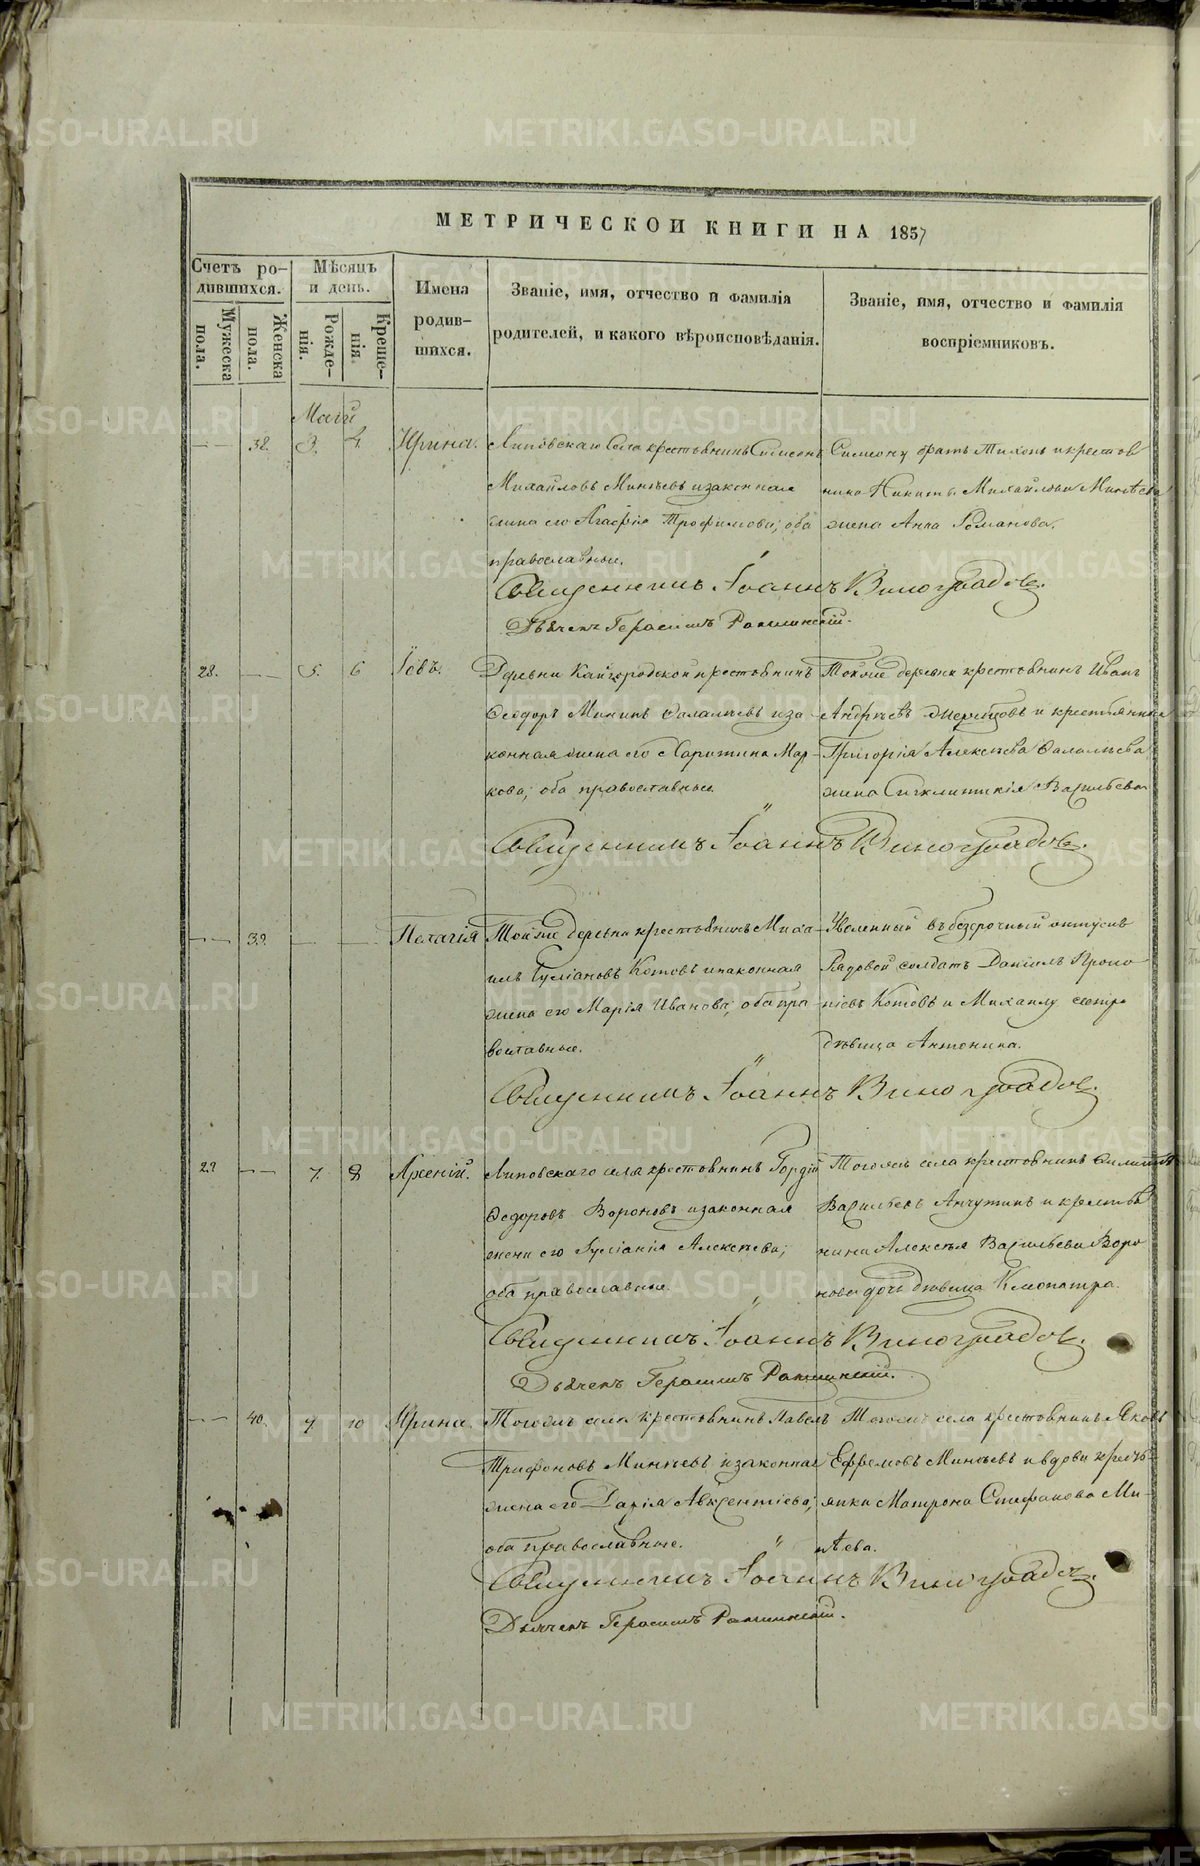 МЕТРИЧЕСКОЙ КНИГИ НА 1857
Счетъ родившихся.
Мѣсяцъ и день.
Имена родившихся.
Званіе, имя, отчество и фамилія родителей, и какого вѣроисповѣданія.
Званіе, имя, отчество и фамилія воспріемниковъ.
Мужеска пола.
Женска пола.
Рожденія.
Крещенія.
Маія
38. 3. 4. Ирина.
Липовскаго села крестьянинъ Симеонъ
Михайловъ Минѣевъ и законная
жена его Агафія Трофимова; оба
православные.
Симеону братъ Тихонъ и крестья
нина Никиты Михайлова Минѣева
жена Анна Романова.
Священникъ Іоаннъ Виноградовъ.
Дьячекъ Герасимъ
28. 5. 6 Іовъ.
Деревни Кайгородской крестьянинъ
Ѳеодоръ Мининъ и за
конная жена его Харитина Мар
кова; оба православные.
Тойже деревни крестьянинъ Иванъ
Андреевъ и крестьянина
Григорія Алексѣева
жена Васильева
Священникъ Іоаннъ Виноградовъ.
39. Пелагія
Тойже деревни крестьянинъ Миха
илъ Іуліановъ Котовъ и законная
жена его Марія Иванова; оба пра
вославные.
Уволенный въ безсрочный отпускъ
Рядовой солдатъ Даніилъ Проко
піевъ Котовъ и Михаилу сестра
дѣвица Антонина.
Священникъ Іоаннъ Виноградовъ.
29 7. 8 Арсеній.
Липовскаго села крестьянинъ Гордій
Ѳедоровъ Вороновъ и законная
жена его Іуліанія Алексѣева;
оба православные.
Тогоже села крестьянинъ
Васильевъ Анчутинъ и крестья
нина Алексѣя Васильева Воро
нова дочь дѣвица Клеопатра.
Священникъ Іоаннъ Виноградовъ.
Дьячекъ Герасимъ
40. 9 10 Ирина.
Тогоже села крестьянинъ Павелъ
Трифоновъ Минѣевъ и законная
жена его Дарія Авксентіева;
оба православные.
Тогоже села крестьянинъ Яковъ
Ефремовъ Минѣевъ и вдова кресть
янка Матрона Стефанова Ми
нѣева.
Священникъ Іоаннъ Виноградовъ.
Дьячекъ Герасимъ
METRIKI.GASO-URAL.RU